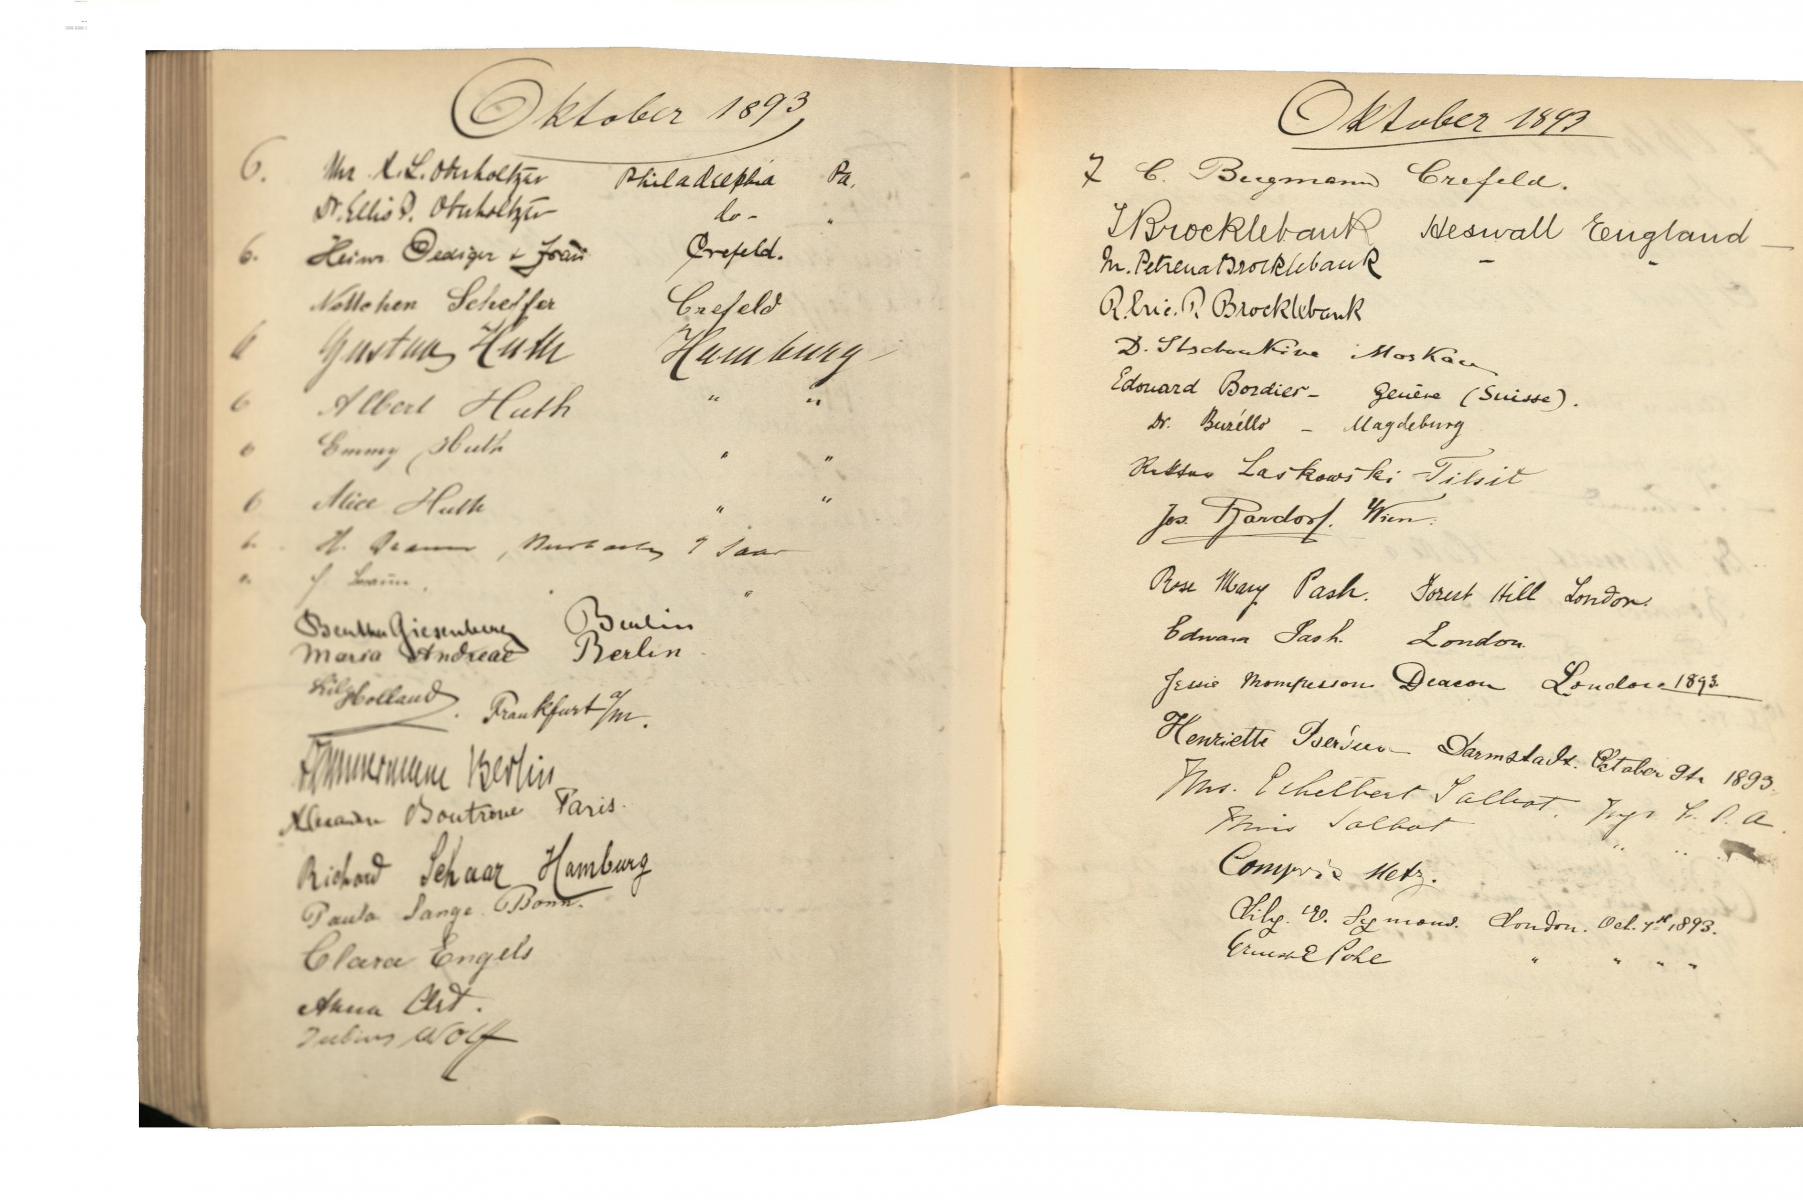 Oktober 1893
6. Mrs. S. L. Oberholtzer Philadelphia Pa.
Dr. Ellis P. Oberholtzer do - "
6. Heinr. Oediger & Frau Crefeld.
Scheffer Crefeld
6 Gustav Huth Hamburg
6 Albert Huth " "
6 Emmy Huth " "
6 Alice Huth " "
H.
Bertha Giesenberg Berlin
Maria Andreae Berlin
Holland Frankfurt a/M.
Zimmermann Berlin
Boutroue Paris.
Richard Schaar Hamburg
Paula Lange Bonn.
Clara Engels
Anna
Julius Wolff
Oktober 1893
7 C. Bergmann Crefeld.
T Brocklebank Heswall England
M. Petrena Brocklebank - "
R. Eric. P. Brocklebank
D. Stschoukine Moskau
Edouard Bordier - Genève (Suisse).
Dr. - Magdeburg
Laskowski Tilsit
Jos. Wien.
Rose Mary Pash. Forest Hill London.
Edward Pash. London
Jessie Mompesson Deacon London 1893
Henriette Darmstadt. October 9th 1893.
Mrs. Ethelbert Talbot.
Miss Talbot " "
Metz.
Lily. Symons. London. Oct. 7th 1893.
Ernest E Pohl " " " "